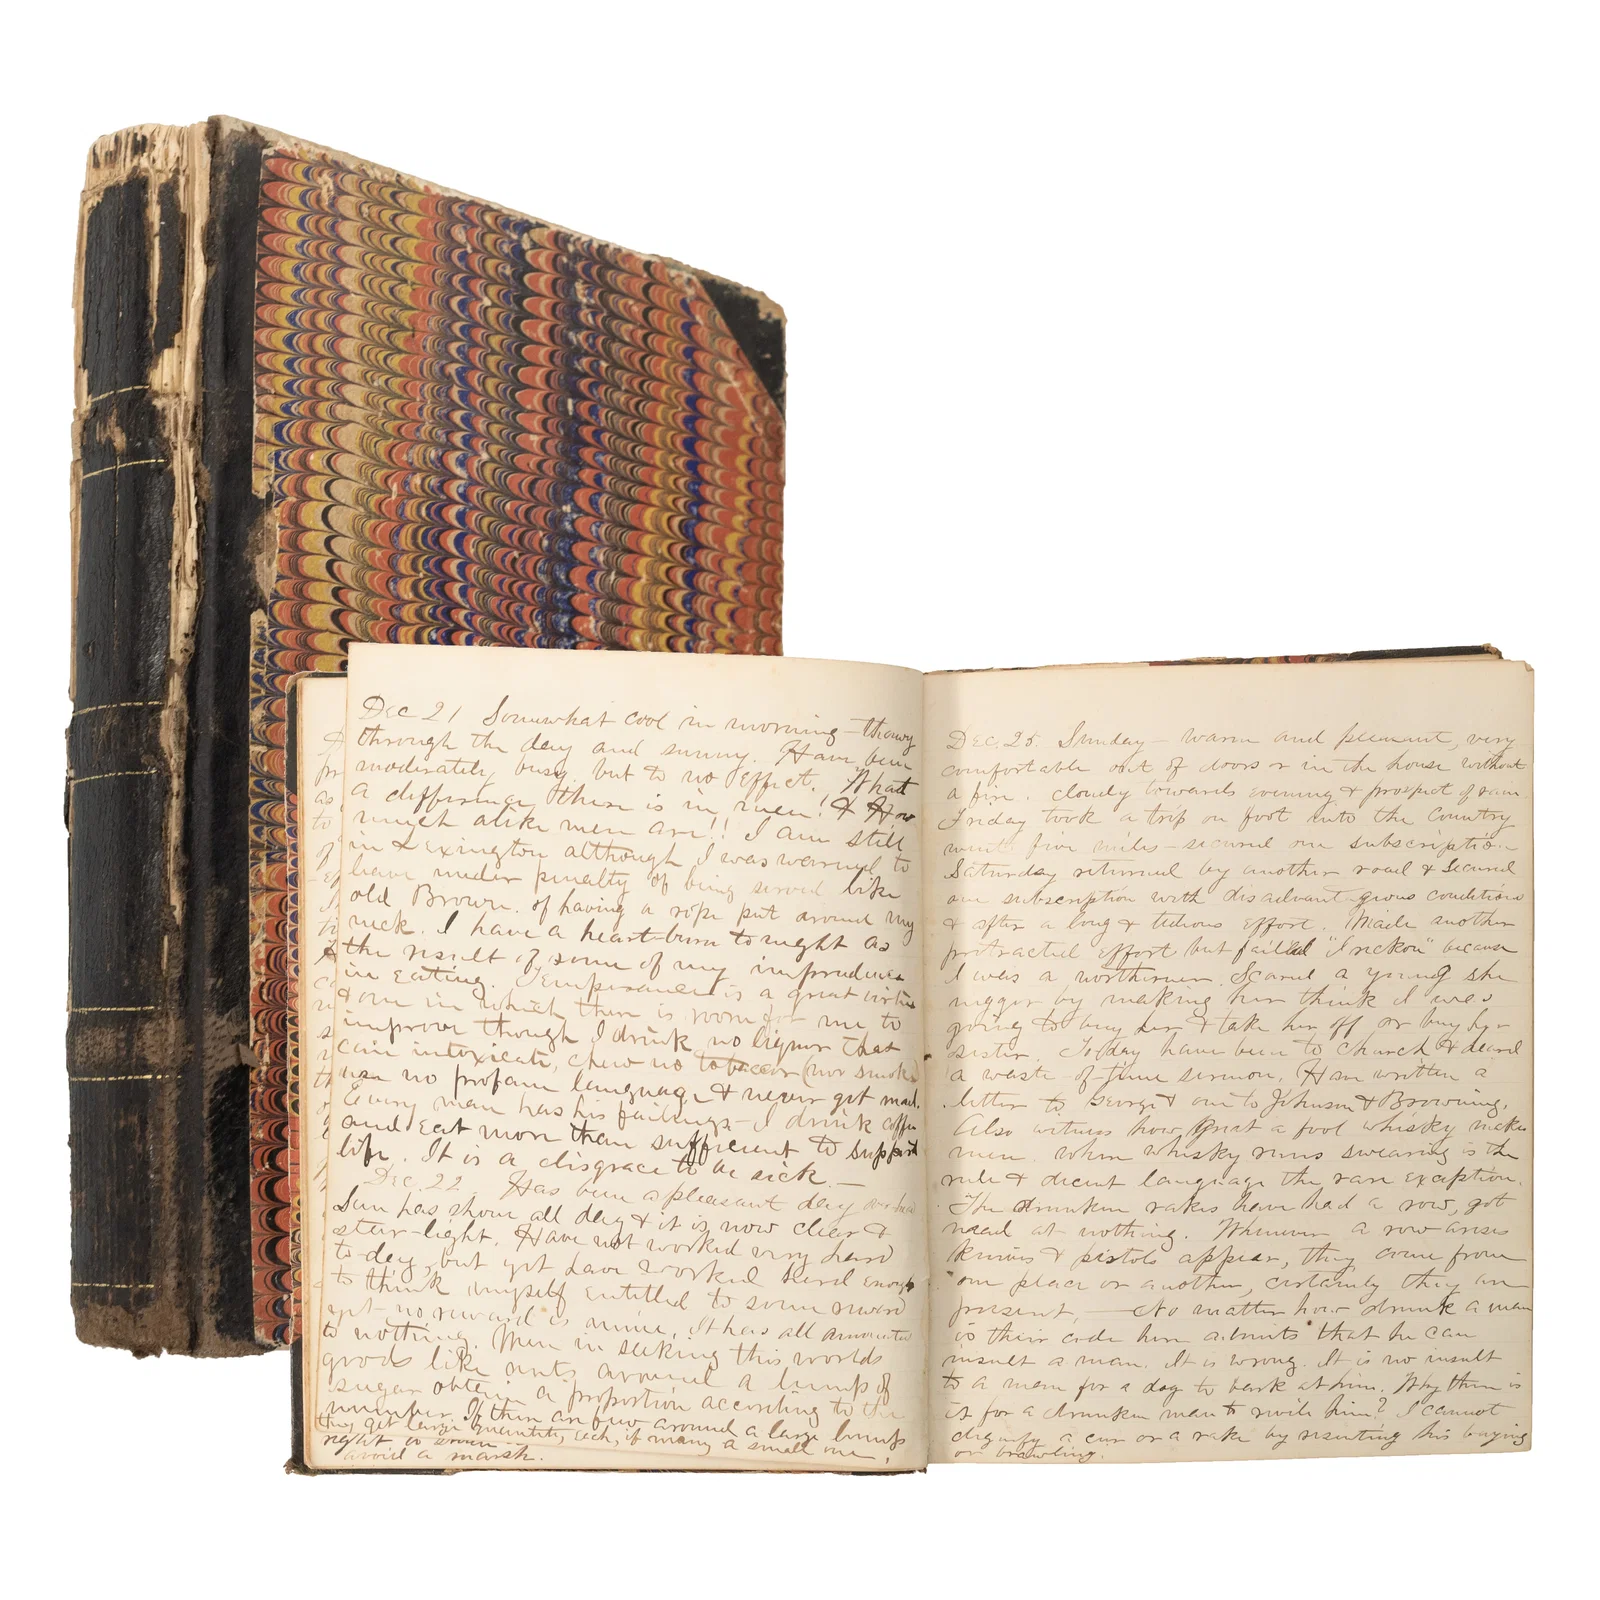 Dec 21 Somewhat cool in morning - thawy
through the day and sunny. Have been
moderately busy, but to no effect. What
a difference there is in men! & How
much alike men are!! I am still
in Lexington although I was warned to
leave under penalty of being served like
old Brown. of having a rope put around my
neck. I have a heart-burn to night as
the result of some of my imprudence
in eating. Temperance is a great virtue
& one in which there is room for me to
improve though I drink no liquor that
can intoxicate, chew no tobaccor (nor smoke)
use no profane language & never get mad.
Every man has his failings - I drink coffee
and eat more than sufficient to support
life. It is a disgrace to be sick. -
Dec. 22. Has been a pleasant day
Sun has shone all day & it is now clear &
star-light. Have not worked very hard
to-day, but yet have worked hard enough
to think myself entitled to some reward
yet no reward is mine. It has all amounted
to nothing. Men in seeking this worlds
goods like ants around a lump of
sugar obtain a proportion according to the
number. If there are few around a large lump
they get large quantities each, if many a small one,
right or
avoid a marsh.
Dec. 25. Sunday - warm and pleasant, very
comfortable out of doors or in the house without
a fire. Cloudy towards evening & prospect of rain
Friday took a trip on foot into the Country
went five miles - secured one subscription -
Saturday returned by another road & secured
one subscription with disadvantageous conditions
& after a long & tedious effort. Made another
protracted effort but failed "I rickon" because
I was a northerner. Scared a young she
nigger by making her think I was
going to buy her & take her off or buy her
sister. To day have been to church & heard
a waste-of-time sermon. Have written a
letter to George & one to Johnson & Browning.
Also witness how great a fool whisky makes
men. When whisky runs swearing is the
rule & decent language the rare exception.
The drunken rakes have had a row, got
mad at nothing. Whenever a row arises
knives & pistols appear, they come from
one place or another, certainly they are
present, - No matter how drunk a man
is their code here admits that he can
insult a man. It is wrong. It is no insult
to a man for a dog to bark at him. Why then is
it for a drunken man to revile him? I cannot
dignify a cur or a rake by resenting his baying
or brawling.